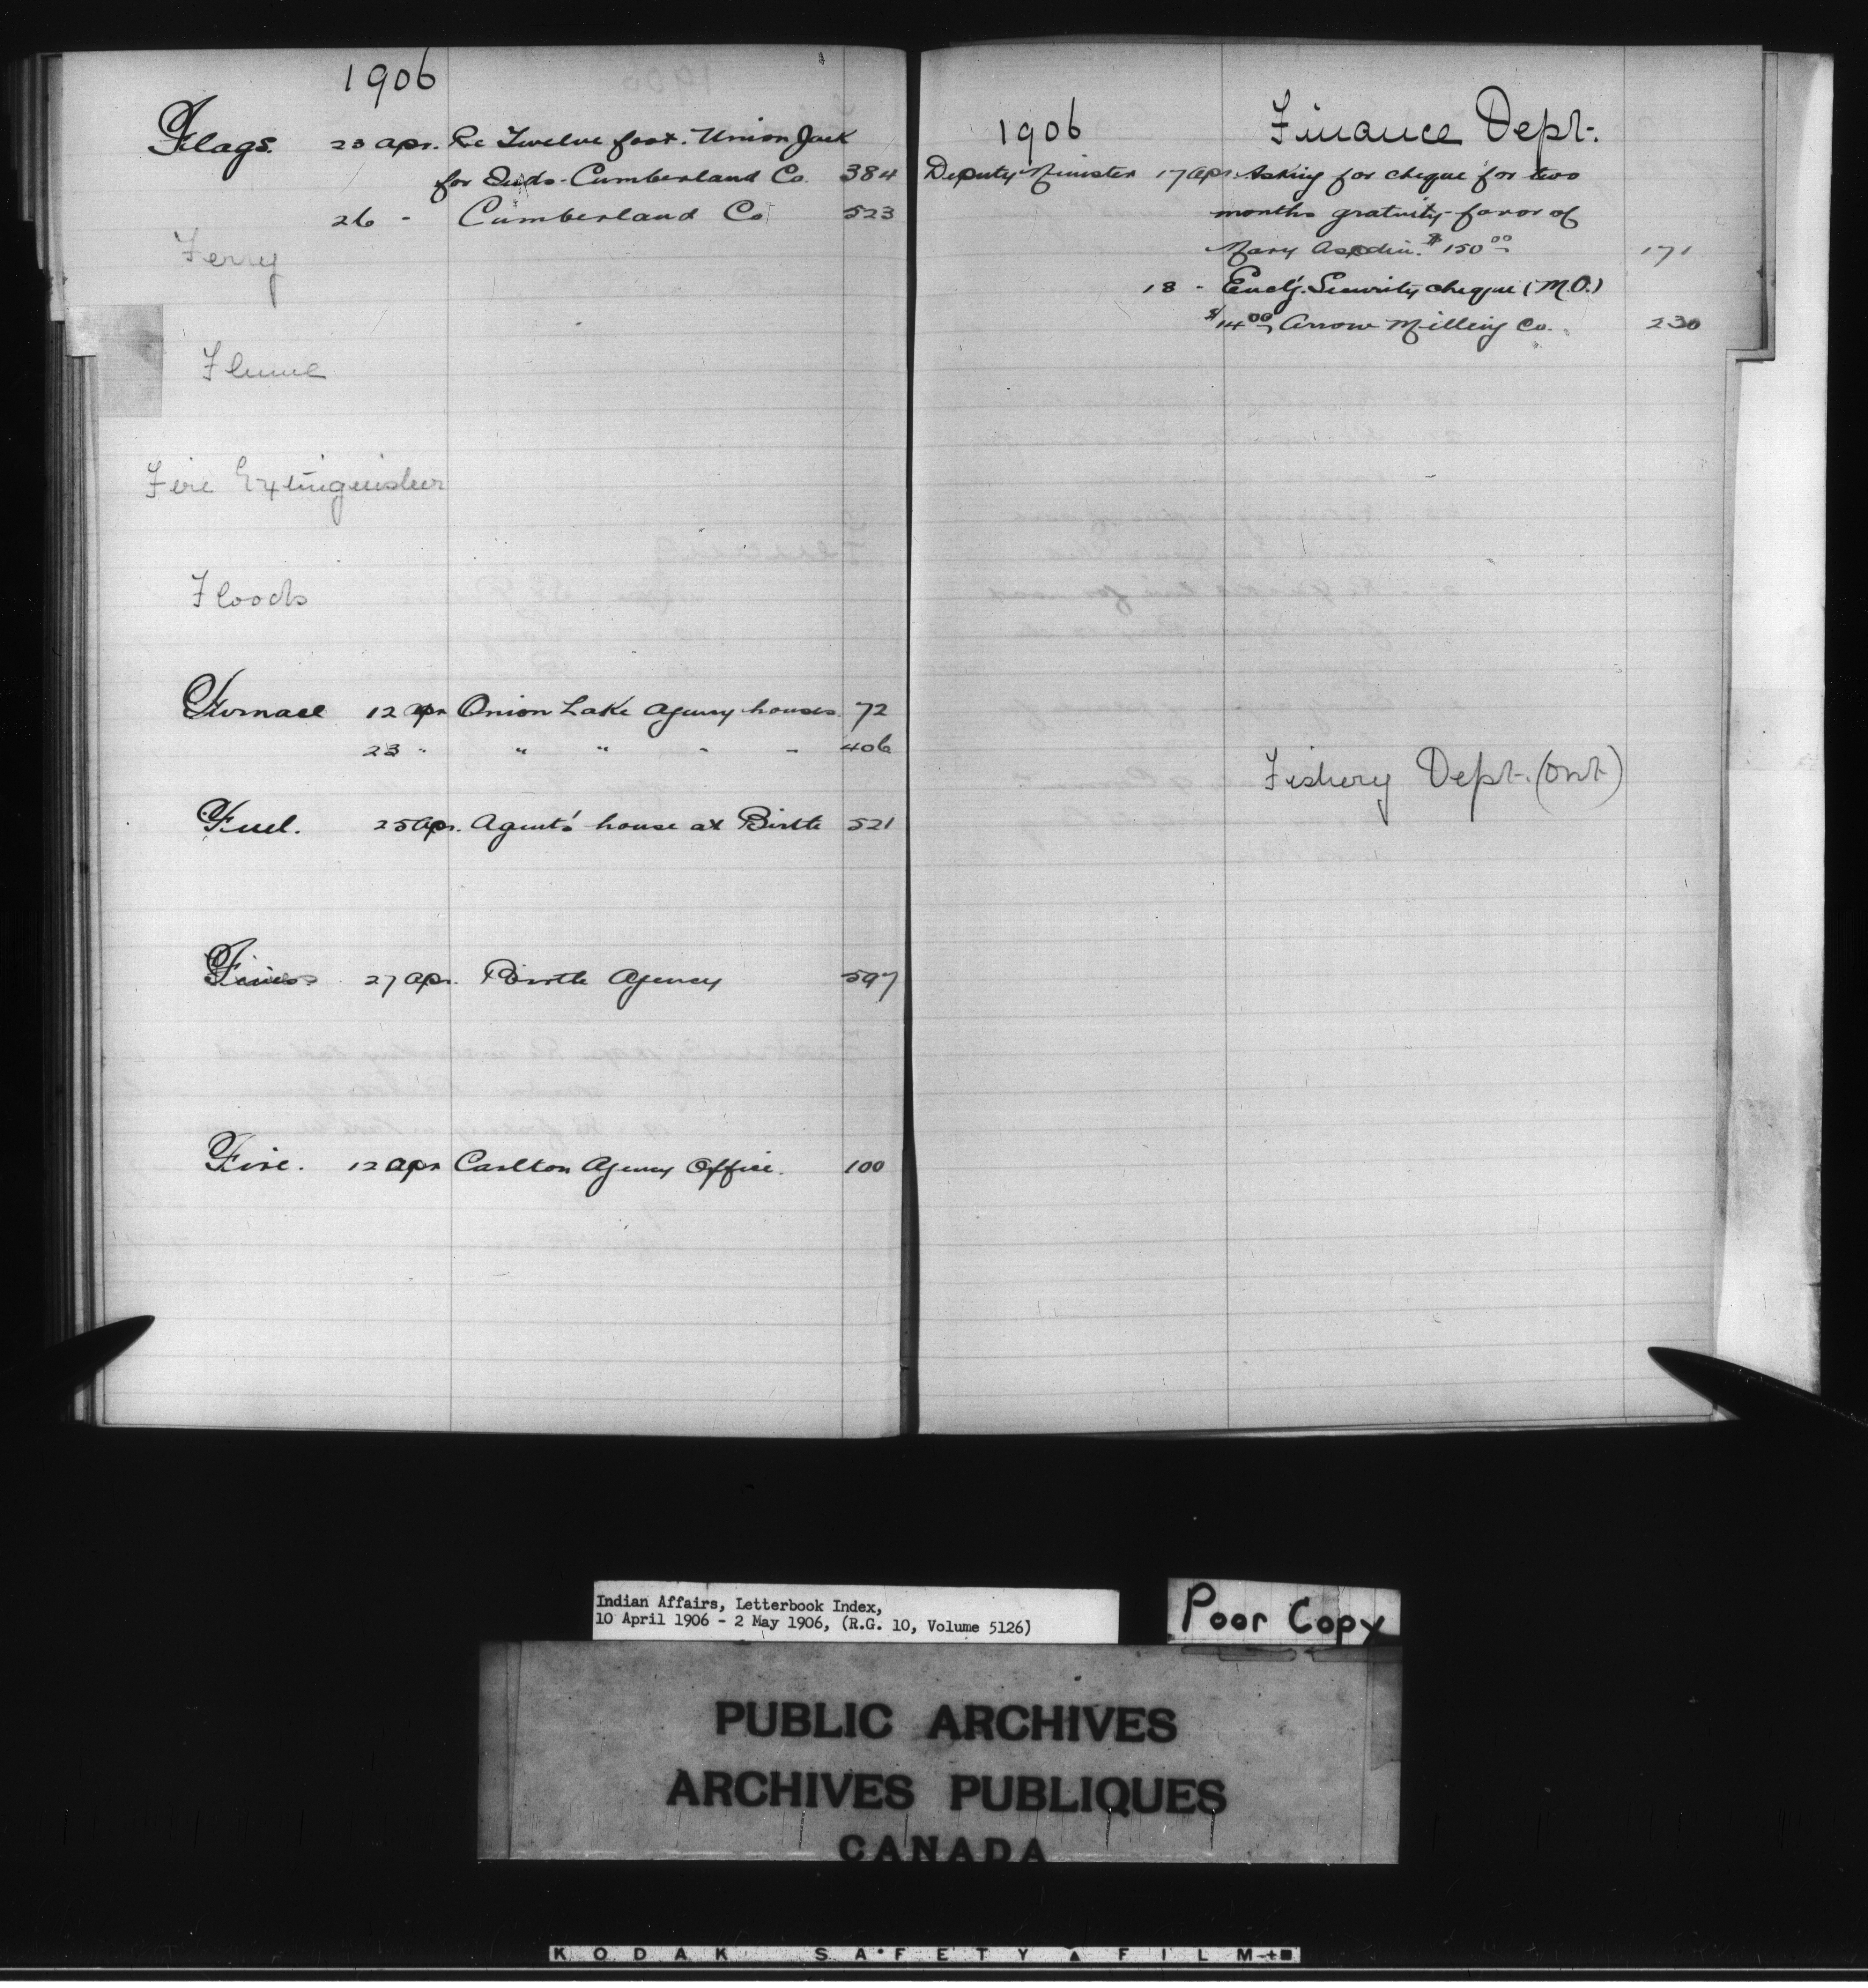 1906
Flags. 23 Apr. Re Twelve foot. Union Jack
for Inds. Cumberland Co. 384
26 - Cumberland Co 523
Ferry
Flume
Fire Extinguisher
Floods
Furnace 12 Apr Onion Lake Agency houses. 72
23 " " " - - 406
Fuel. 25 Apr. Agent's house at Birtle 521
Fines 27 Apr. Birtle Agency 597
Fire. 12 Apr Carlton Agency Office. 100
1906 Finance Dept.
Deputy Minister 17 Apr. Asking for cheque for two
months gratuity favor of
Mary $150 00 171
18 - Encl'g. Security cheque (M.O.)
$14 00 Arrow Milling Co. 230
Fishery Dept. (Ont)
Indian Affairs, Letterbook Index,
10 April 1906 - 2 May 1906, (R.G. 10, Volume 5126)
Poor Copy
PUBLIC ARCHIVES
ARCHIVES PUBLIQUES
CANADA
KODAK SAFETY FILM